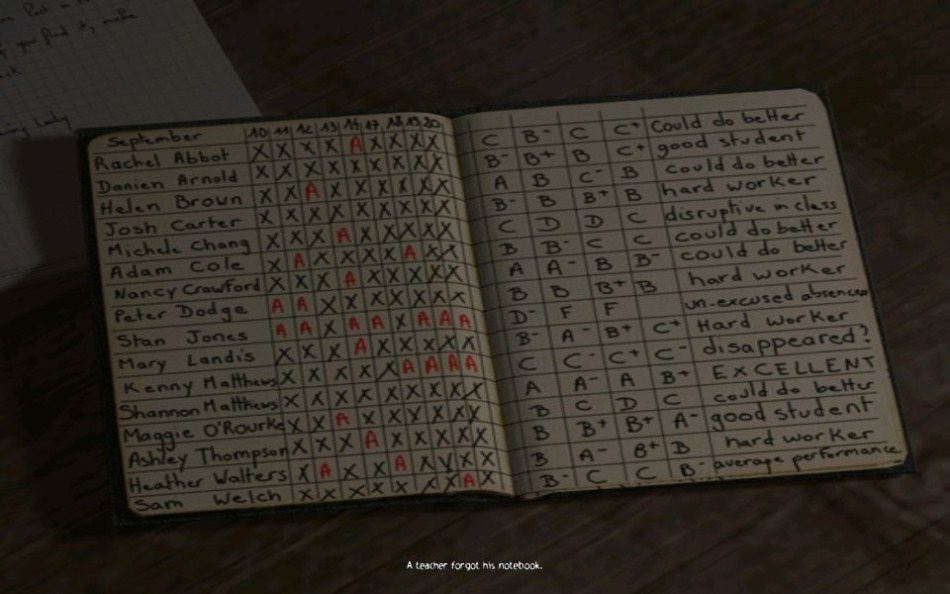 you find it, make
September 10 11 12 13 14 17 18 19 20
Rachel Abbot X X X X A X X X X C B- C C+ Could do better
Danien Arnold X X X X X X X X X B- B+ B C+ good student
Helen Brown X X A X X X X X X A B C- B could do better
Josh Carter X X X X X X X X X B- B B+ B hard worker
Michele Chang X X X A X X X X X C D D C disruptive in class
Adam Cole X A X X X X A X X B B- C C could do better
Nancy Crawford X X X A X X X X X A A- B B- could do better
Peter Dodge A A X X X X X X X B B B+ B hard worker
Stan Jones A A X A A X A A A D- F F un-excused absences
Mary Landis X X X A X X X X X B- A- B+ C+ Hard worker
Kenny Matthews X X X X X A A A A C C- C+ C- disappeared?
Shannon Matthews X X X X X X X X X A A- A B+ EXCELLENT
Maggie O'Rourke X X A X X X X X X B C D C could do better
Ashley Thompson X X X A X X X X X B B+ B+ A- good student
Heather Walters X A X X A X X X X B A- B+ B hard worker
Sam Welch X X X X X X X A X B- C C B- average performance
A teacher forgot his notebook.